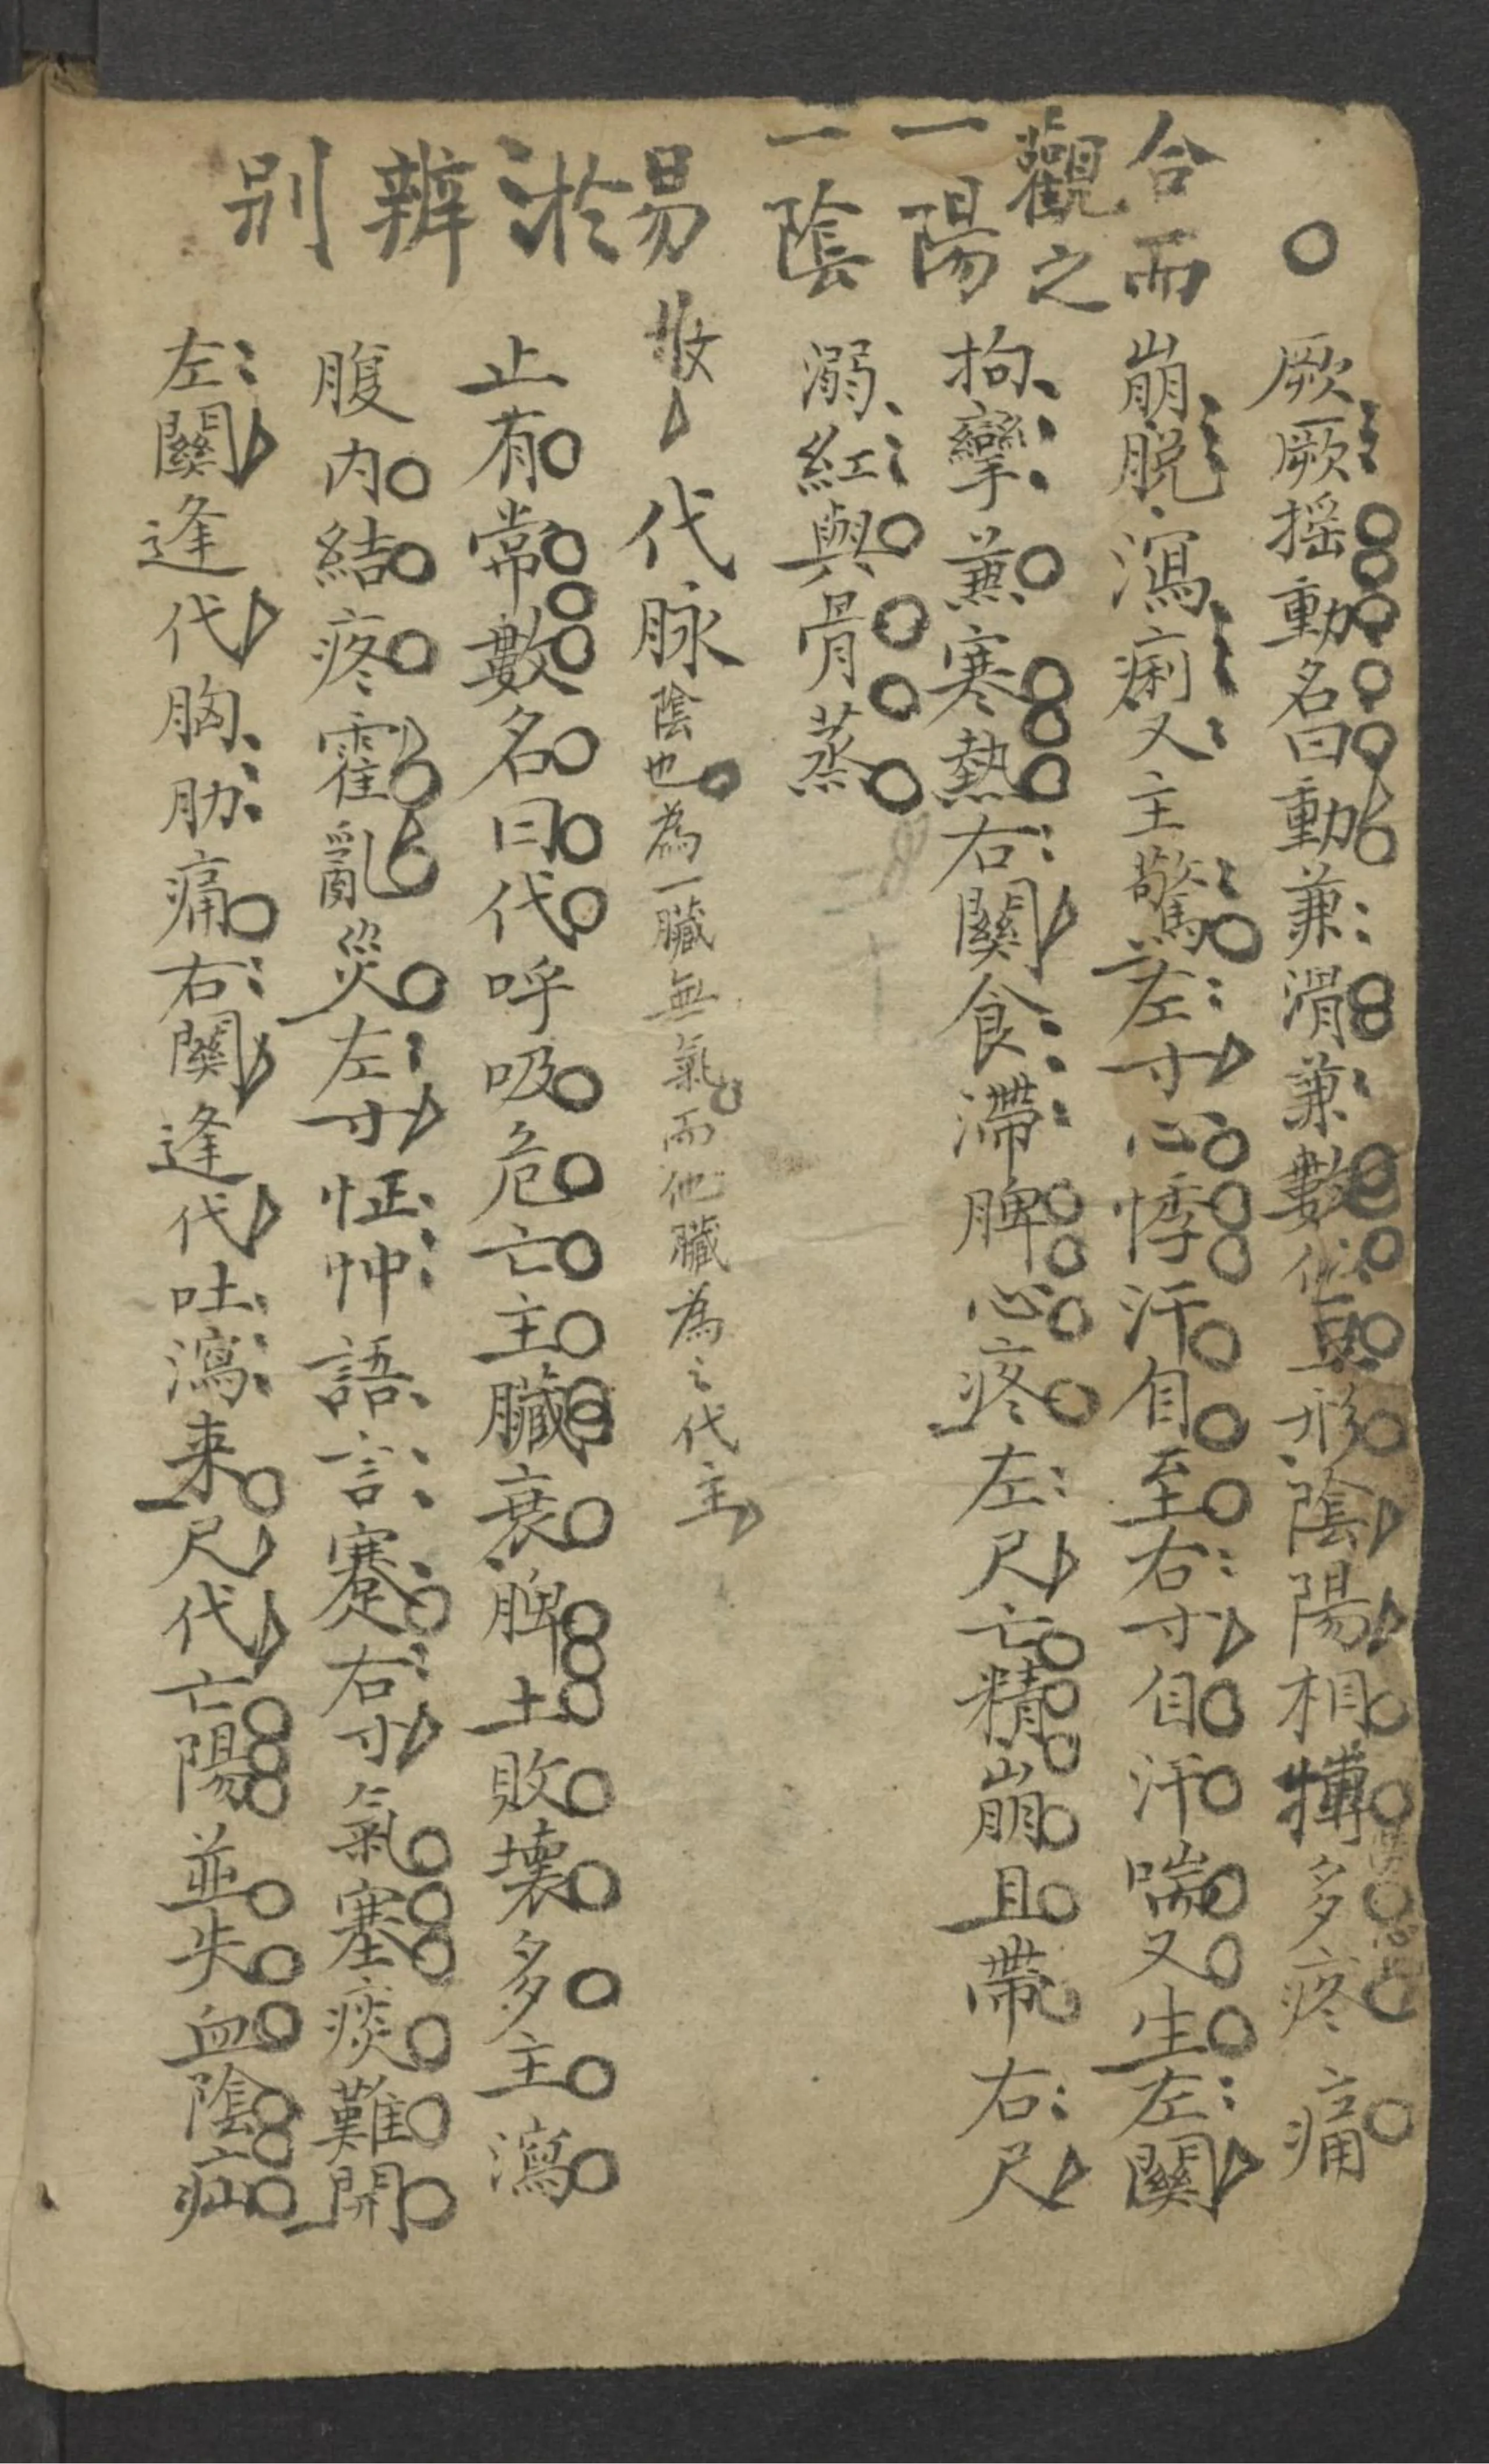 合而觀之一陽一陰易於辨别
厥厥摇動名曰動兼滑兼數似豆形陰陽相搏多疼痛
崩脱瀉痢又主驚左寸心悸汗自至右寸自汗喘又生左關
拘攣兼寒熱右關食滯脾心疼左尺亡精崩且帶右尺
溺紅與骨蒸
代脉陰也為一臟無氣而他臟為之代主
止有常數名曰代呼吸危亡主臟衰脾土敗壞多主瀉
腹内結疼霍亂災左寸怔忡語言蹇右寸氣塞痰難開
左關逢代胸肋痛右關逢代吐瀉来尺代亡陽並失血陰疝